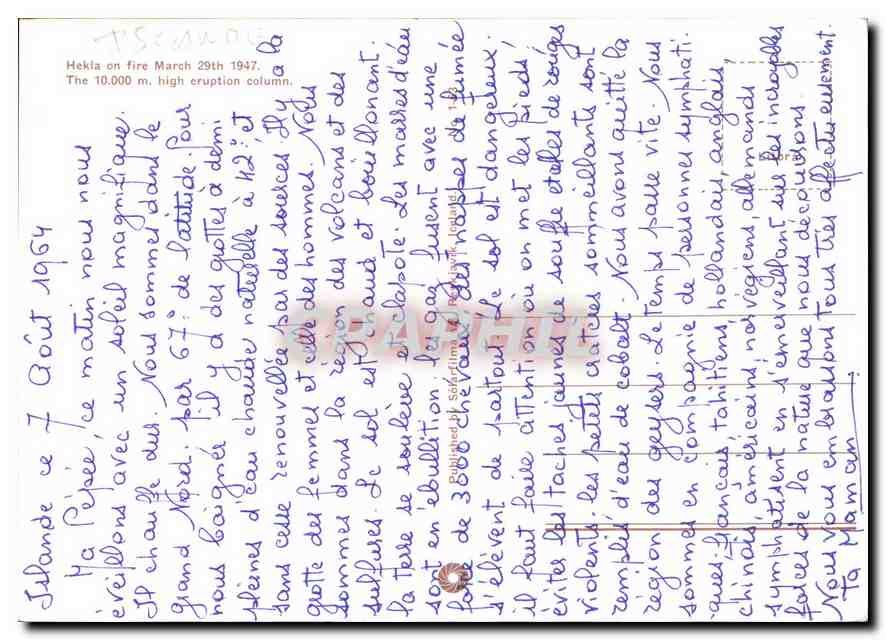 ISLANDE
Hekla on fire March 29th 1947.
The 10.000 m. high eruption column.
Published by Sólarfilma, Reykjavik, Iceland
Islande ce 7 Août 1964
Ma Pépée, ce matin nous nous
éveillons avec un soleil magnifique.
Il chauffe dur. Nous sommes dans le
grand Nord. par 67° de latitude. Pour
nous baigner il y a des grottes à demi
pleines d'eau chaude naturelle à 42° et
sans cesse renouvellée par des sources. Il y a la
grotte des femmes et celle des hommes. Nous
sommes dans la région des volcans et des
sulfuses. Le sol est chaud et bouillonant.
la terre se soulève et clapote. Les masses d'eau
sont en ébullition, les gaz fusent avec une
force de 3000 chevaux, des nappes de fumée
s'élèvent de partout. Le sol est dangereux.
il faut faire attention où on met les pieds,
éviter les taches jaunes de souffre et celles de rouges
violents. les petits cratères sommeillants sont
remplis d'eau de cobalt. Nous avons quitté la
région des geysers. Le temps passe vite. Nous
sommes en compagnie de personnes symphati.
ques. français, tahitiens, hollandais, anglais,
chinois, américains, norvégiens, allemands
symphatisent en s'émerveillant sur les incroyables
forces de la nature que nous découvrons.
Nous vous embrassons tous très affectueusement.
Ta Maman.